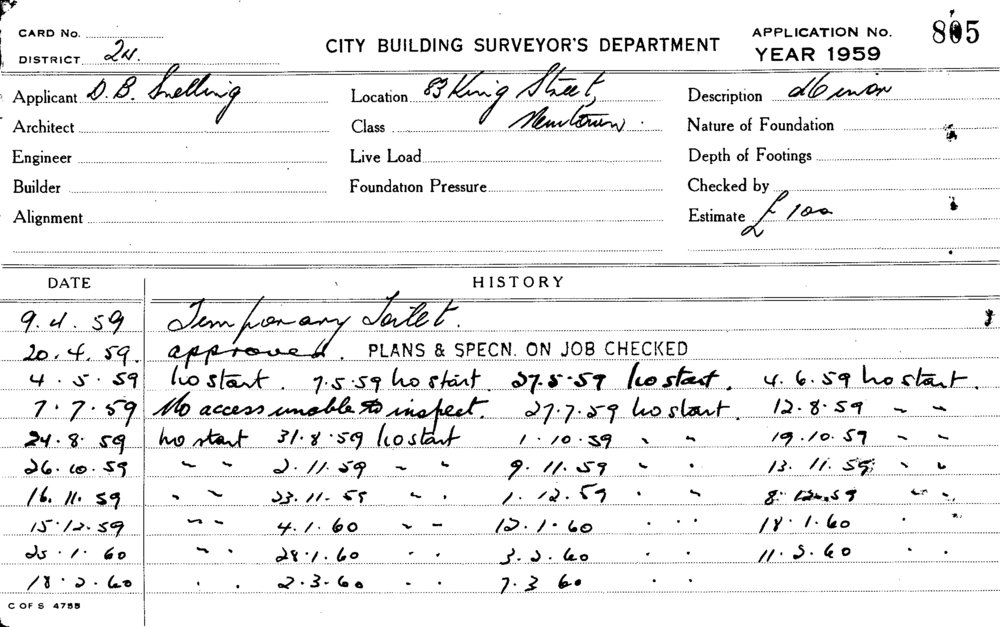 CARD No.
DISTRICT 24.
CITY BUILDING SURVEYOR'S DEPARTMENT
APPLICATION No. 805
YEAR 1959
Applicant D. B. Snelling Location 83 King Street, Description Minor
Architect Class Newtown. Nature of Foundation
Engineer Live Load Depth of Footings
Builder Foundation Pressure Checked by
Alignment Estimate £ 100
DATE HISTORY
9.4.59 Temporary Toilet.
20.4.59. approved. PLANS & SPECN. ON JOB CHECKED
4.5.59 No start. 7.5.59 No start. 27.5.59 No start. 4.6.59 No start.
7.7.59 No access unable to inspect. 27.7.59 No start. 12.8.59 " "
24.8.59 No start 31.8.59 No start 1.10.59 " " 19.10.59 " "
26.10.59 " " 2.11.59 " " 9.11.59 " " 13.11.59 " "
16.11.59 " " 23.11.59 " " 1.12.59 " " 8.12.59 " "
15.12.59 " " 4.1.60 " " 12.1.60 " " 18.1.60 " "
25.1.60 " " 28.1.60 " " 3.2.60 " " 11.2.60 " "
18.2.60 " " 2.3.60 " " 7.3.60 " "
C OF S 4755